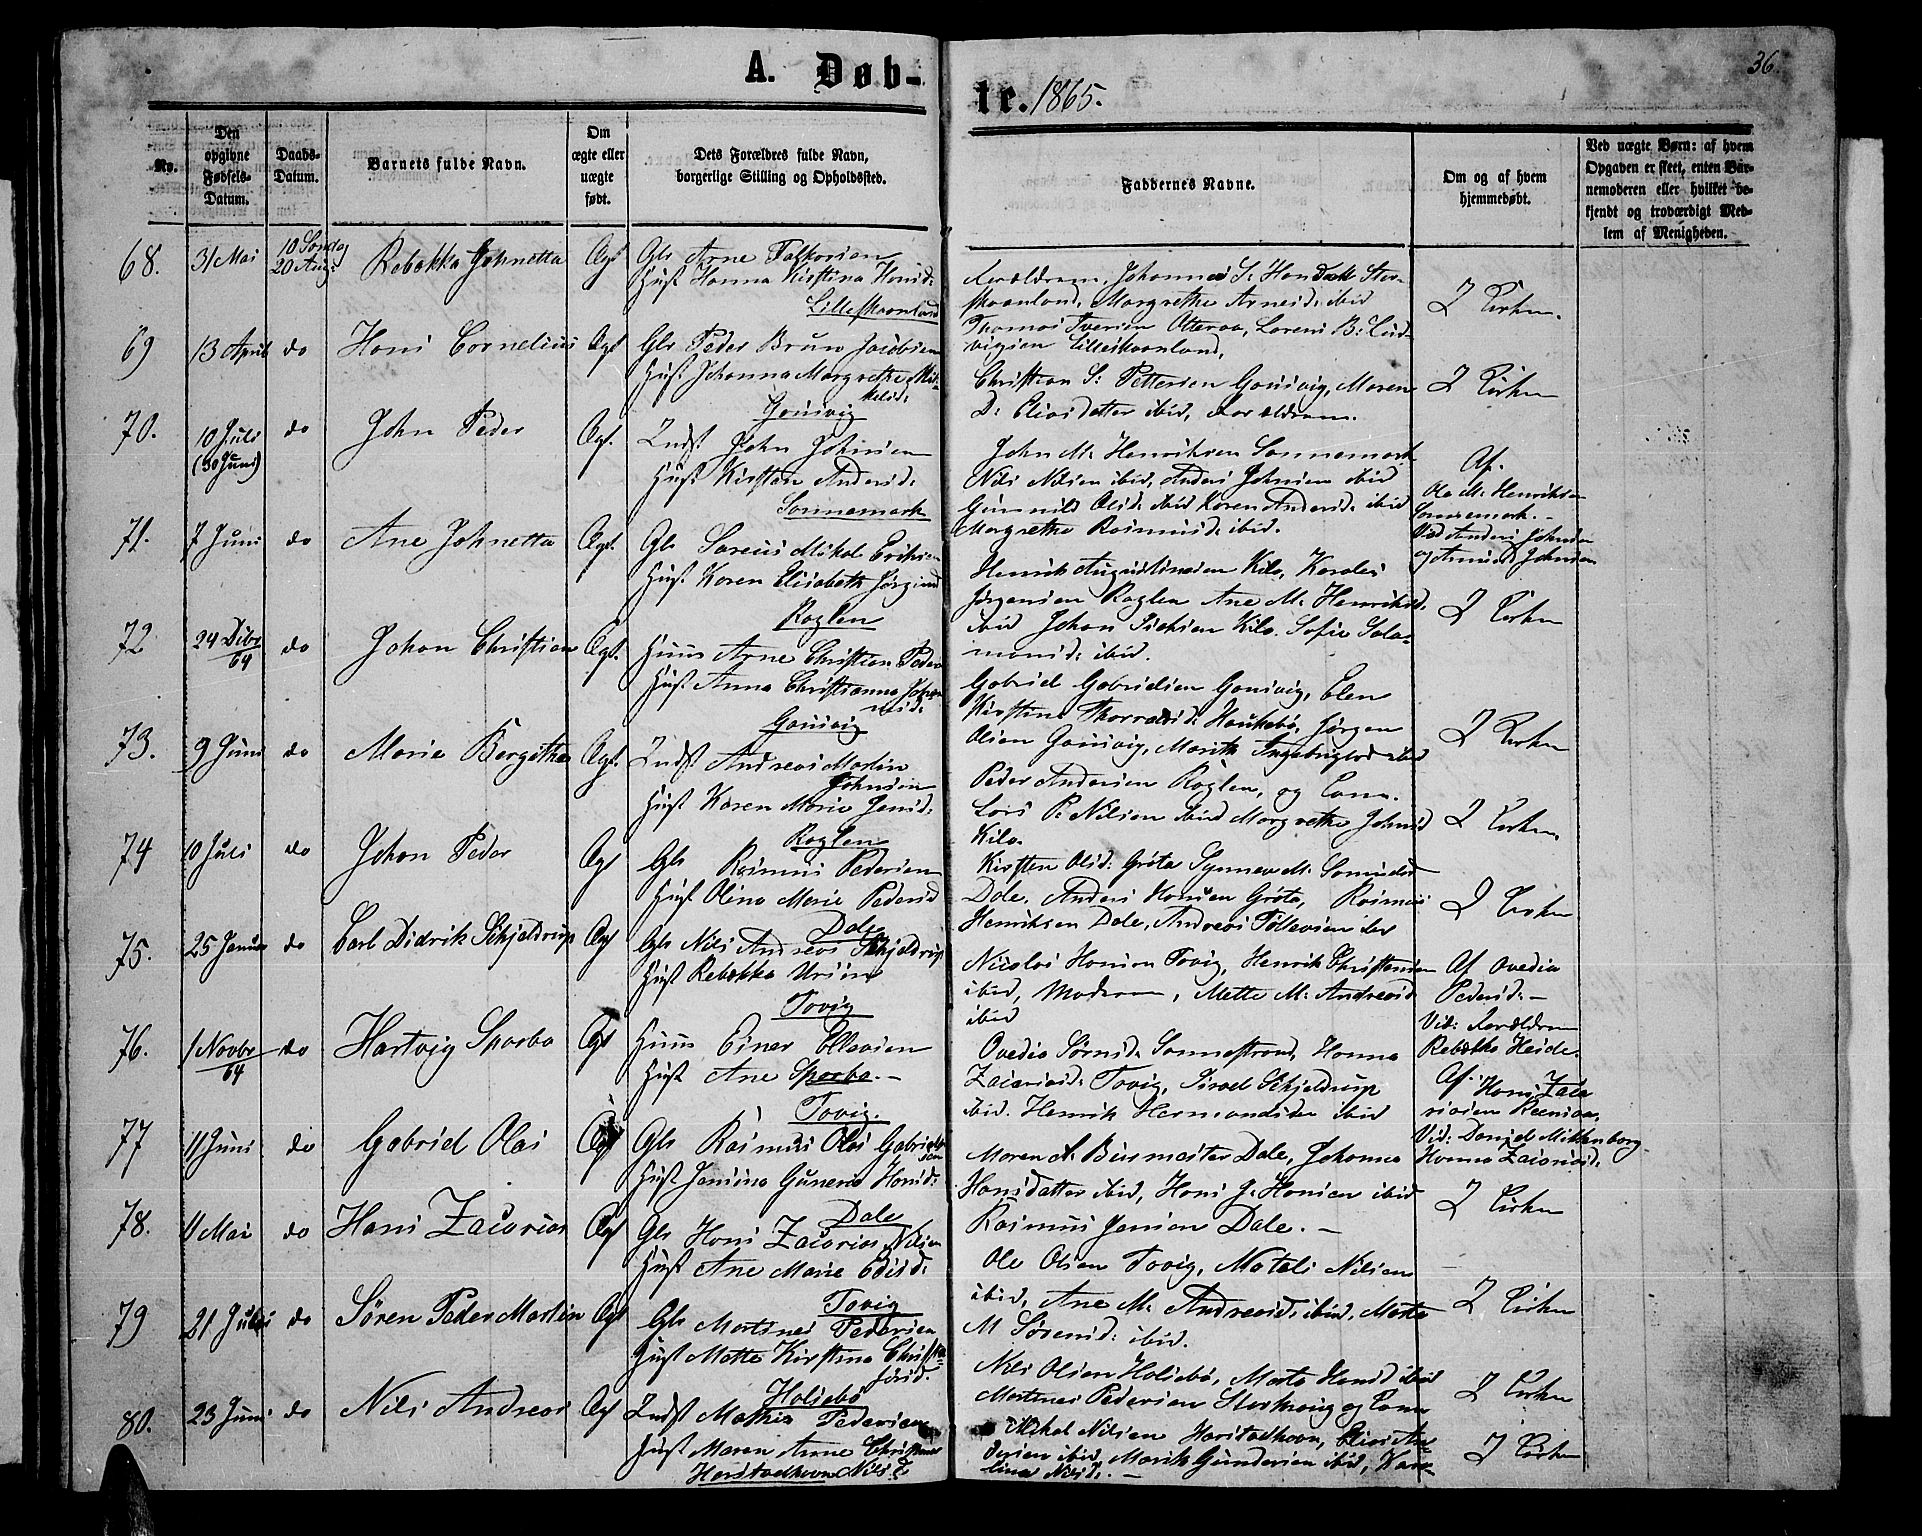 36.
A. Døb-
te. 1865.
No.
Den opgivne Fødsels-Datum.
Daabs-Datum.
Barnets fulde Navn.
Om ægte eller uægte født.
Dets Forældres fulde Navn, borgerlige Stilling og Opholdssted.
Faddernes Navne.
Om og af hvem hjemmedøbt.
Ved uægte Børn: af hvem Opgaven er skeet, enten Barnemoderen eller hvilket bekjendt og troværdigt Medlem af Menigheden.
68. 31 Mai 10 Søndag 20 Aug: Rebekka Johnetta Ægt Gbr Arne
Hust Hanna Kirstina Hansd:
Lilleskaanland
Forældrene, Johannes S: Store
skaanland, Margrethe Arnesd: ibid
Thomas Iversen Otteraa, Lorens B: Lud
vigsen Lilleskaanland,
I Kirken.
69 13 April do Hans Cornelius Ægt Gbr Peder Brun Jacobsen
Hust Johanna Margrethe Mik
kelsd:
Gausvig
Christian S: Pettersen Gausvig, Maren
D: Eliasdatter ibid, Forældrene.
I Kirken
70. 10 Juli (30 Juni) do John Peder Ægt. Indst John Johnsen
Hust Kirsten Andersd:
Sannemark
John M. Henriksen Sannemark
Nils Nilsen ibid, Anders Johnsen ibid
Gunnild Olsd: ibid Karen Andersd: ibid
Margrethe Rasmusd: ibid.
Af.
Ole M. Henriksen
Sannemark.-
Vid Anders Johnsen
og Johnsen
71. 7 Juni do Ane Johnetta Ægt. Gbr Mikal Eriksen
Hust Karen Elisabeth Jørgensd
Røglen
Henrik Augustinusen Kilo, Karoles
Jørgensen Røglen Ane M. Henriksd.
ibid Johan Kilo. Sofie Salo-
monsd: ibid.
I Kirken
72 24 Dcbr/64 do Johan Christian Ægt. Huus Arne Christian Peder
Hust Anna Christianna Johan
nesd:
Gausvig
Gabriel Gabrielsen Gausvig, Elen
Kirstine Haukebø, Jørgen
Olsen Gausvig, Marith Ingebrigtsd ibid
I Kirken
73. 9 Juni do Marie Bergitha Ægt. Indst Andreas Martin
Johnsen
Hust Karen Marie Jensd:
Røglen
Peder Andersen Røglen, og Cone.
Lars P. Nilsen ibid Margrethe Johnsd
Kilo.
I Kirken.
74 10 Juli do Johan Peder Ægt Gbr Rasmus Pedersen
Hust Olina Marie Pedersd
Dale
Kirsten Olsd: Grøta Synnev M.
Dale, Anders Hansen Grøta, Rasmus
Henriksen Dale, Andreas
I Kirken
75. 25 Januar do Carl Didrik Schjeldrup Ægt Gbr Nils Andreas Schjeldrup
Hust Rebekka
Tovig
Nicolai Hansen Tovig, Henrik Christensen
ibid, Moderen, Mette M: Andreasd:
ibid
Af Ovedia
Pedersd:-
Vid: Forældrene
Rebekka Heide.
76. 1 Novbr/64 do Hartvig Sparbo Ægt Huus Einar Ellevsen
Hust Ane Sparbo.-
Tovig.
Ovedia Sørensd: Sannestrand, Hanna
Zacariasd: Tovig, Schjeldrup
ibid. Henrik Hermandsen ibid
Af. Hans Zaca
riasen
Vid: Daniel Mittenborg
Hanna Zacariasd:
77 11 Juni do Gabriel Olai Ægt Gbr Rasmus Olai Gabriel
sen
Hust Jensina Gunera Hansd:
Dale
Maren A Busmester Dale, Johanna
Hansdatter ibid, Hans J. Hansen ibid
Rasmus Jensen Dale.-
I Kirken
78. 11 Mai do Hans Zacarias Ægt Gbr Hans Zacarias Nilsen
Hust Ane Marie
Tovig
Ole Olsen Tovig, Mateli Nilsens
ibid, Ane M. Andreasd: ibid, Marta
M Sørensd: ibid.
I Kirken
79 21 Juli do Søren Peder Martin Ægt Gbr Mortines Pedersen
Hust Mette Kirstina Christo
fersd.
Halsebø
Nils Olsen Halsebø, Marta Hansd ibid
Mortines Pedersen Storkvig og Cone
I Kirken
80. 23 Juni do Nils Andreas Ægt Indst Mathis Pedersen
Hust Maren Anne Christine
Harstadhavn Nilsd
Mikal Nilsen Harstadhavn, Elias An-
dersen ibid, Marith Gundersen ibid, Kare
lina Nilsd:.-
I Kirken